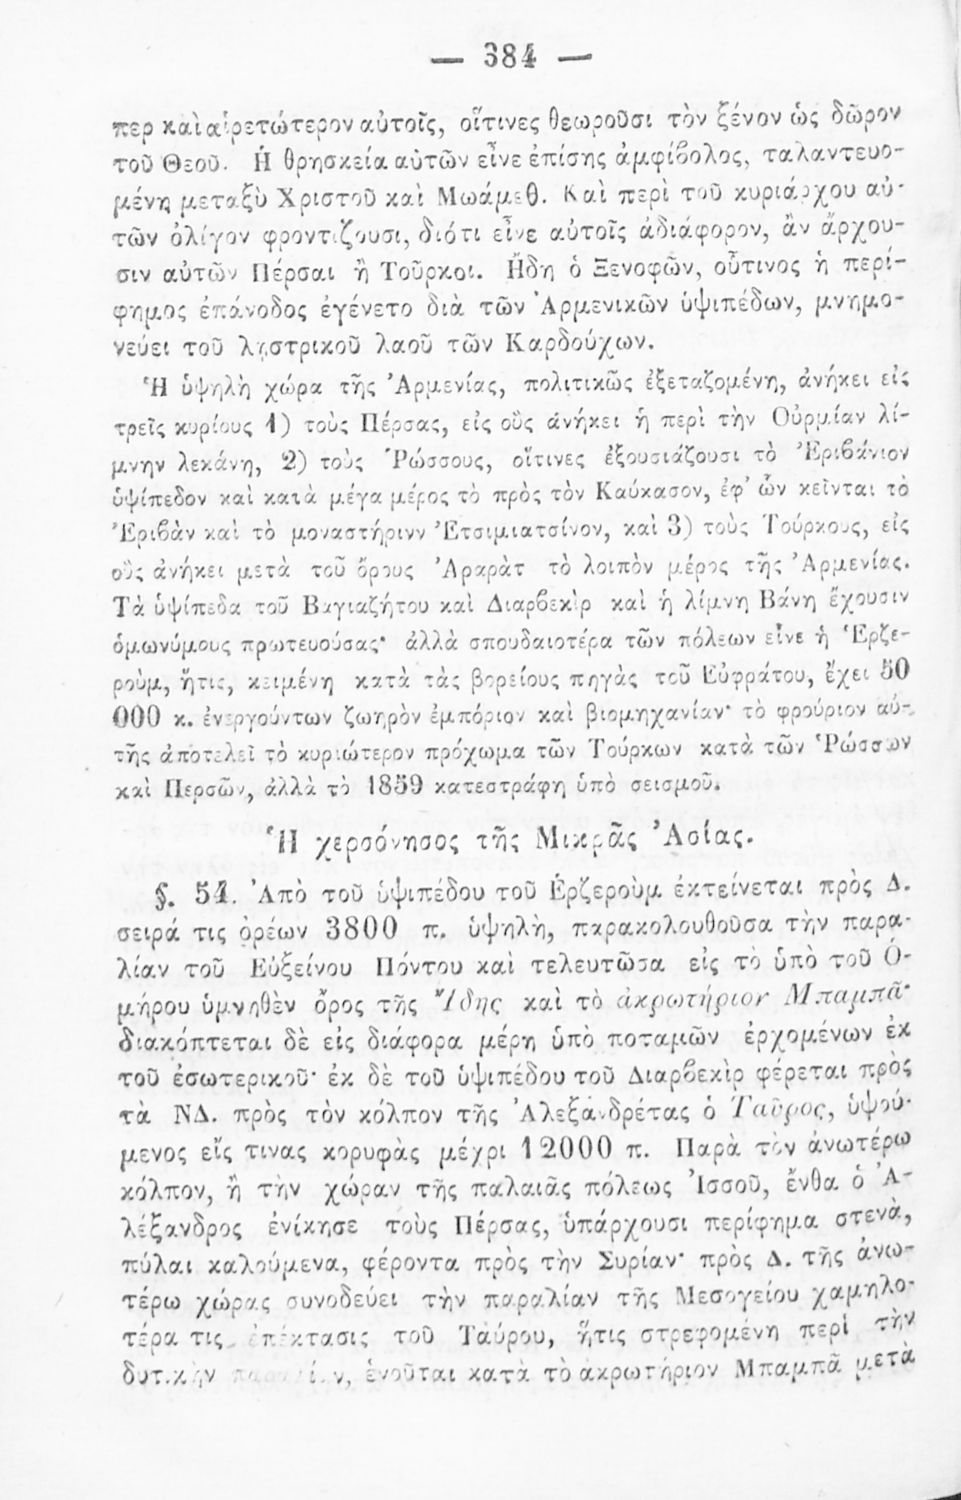 — 384 —
περ καὶ αἱρετώτερον αὐτοῖς, οἵτινες θεωροῦσι τὸν ξένον ὡς δῶρον
τοῦ Θεοῦ. Ἡ θρησκεία αὐτῶν εἶνε ἐπίσης ἀμφίβολος, ταλαντευο-
μένη μεταξὺ Χριστοῦ καὶ Μωάμεθ. Καὶ περὶ τοῦ κυριάρχου αὐ-
τῶν ὀλίγον φροντίζουσι, διότι εἶνε αὐτοῖς ἀδιάφορον, ἂν ἄρχου-
σιν αὐτῶν Πέρσαι ἢ Τοῦρκοι. Ἤδη ὁ Ξενοφῶν, οὗτινος ἡ περί-
φημος ἐπάνοδος ἐγένετο διὰ τῶν Ἀρμενικῶν ὑψιπέδων, μνημο-
νεύει τοῦ λῃστρικοῦ λαοῦ τῶν Καρδούχων.
Ἡ ὑψηλὴ χώρα τῆς Ἀρμενίας, πολιτικῶς ἐξεταζομένη, ἀνήκει εἰς
τρεῖς κυρίους 1) τοὺς Πέρσας, εἰς οὓς ἀνήκει ἡ περὶ τὴν Οὐρμίαν λί-
μνην λεκάνη, 2) τοὺς Ῥώσσους, οἵτινες ἐξουσιάζουσι τὸ Ἐριβάνιον
ὑψίπεδον καὶ κατὰ μέγα μέρος τὸ πρὸς τὸν Καύκασον, ἐφ' ὧν κεῖνται τὸ
Ἐριβὰν καὶ τὸ μοναστήρινν Ἐτσιμιατσίνον, καὶ 3) τοὺς Τούρκους, εἰς
οὓς ἀνήκει μετὰ τοῦ ὄρους Ἀραρὰτ τὸ λοιπὸν μέρος τῆς Ἀρμενίας.
Τὰ ὑψίπεδα τοῦ Βαγιαζήτου καὶ Διαρβεκὶρ καὶ ἡ λίμνη Βάνη ἔχουσιν
ὁμωνύμους πρωτευούσας· ἀλλὰ σπουδαιοτέρα τῶν πόλεων εἶνε ἡ Ἐρζε-
ροὺμ, ἥτις, κειμένη κατὰ τὰς βορείους πηγὰς τοῦ Εὐφράτου, ἔχει 50
000 κ. ἐνεργούντων ζωηρὸν ἐμπόριον καὶ βιομηχανίαν· τὸ φρούριον αὐ-
τῆς ἀποτελεῖ τὸ κυριώτερον πρόχωμα τῶν Τούρκων κατὰ τῶν Ῥώσσων
καὶ Περσῶν, ἀλλὰ τὸ 1859 κατεστράφη ὑπὸ σεισμοῦ.
Ἡ χερσόνησος τῆς Μικρᾶς Ἀσίας.
§. 54. Ἀπὸ τοῦ ὑψιπέδου τοῦ Ἐρζεροὺμ ἐκτείνεται πρὸς Δ.
σειρά τις ὀρέων 3800 π. ὑψηλὴ, παρακολουθοῦσα τὴν παρα-
λίαν τοῦ Εὐξείνου Πόντου καὶ τελευτῶσα εἰς τὸ ὑπὸ τοῦ Ὁ-
μήρου ὑμνηθὲν ὄρος τῆς Ἴδης καὶ τὸ ἀκρωτήριον Μπαμπᾶ·
διακόπτεται δὲ εἰς διάφορα μέρη ὑπὸ ποταμῶν ἐρχομένων ἐκ
τοῦ ἐσωτερικοῦ· ἐκ δὲ τοῦ ὑψιπέδου τοῦ Διαρβεκὶρ φέρεται πρὸς
τὰ ΝΔ. πρὸς τὸν κόλπον τῆς Ἀλεξανδρέτας ὁ Ταῦρος, ὑψού-
μενος εἴς τινας κορυφὰς μέχρι 12000 π. Παρὰ τὸν ἀνωτέρω
κόλπον, ἢ τὴν χώραν τῆς παλαιᾶς πόλεως Ἰσσοῦ, ἔνθα ὁ Ἀ-
λέξανδρος ἐνίκησε τοὺς Πέρσας, ὑπάρχουσι περίφημα στενὰ,
πύλαι καλούμενα, φέροντα πρὸς τὴν Συρίαν· πρὸς Δ. τῆς ἀνω-
τέρω χώρας συνοδεύει τὴν παραλίαν τῆς Μεσογείου χαμηλο-
τέρα τις ἐπέκτασις τοῦ Ταύρου, ἥτις στρεφομένη περὶ τὴν
δυτικὴν παραλίαν, ἑνοῦται κατὰ τὸ ἀκρωτήριον Μπαμπᾶ μετὰ